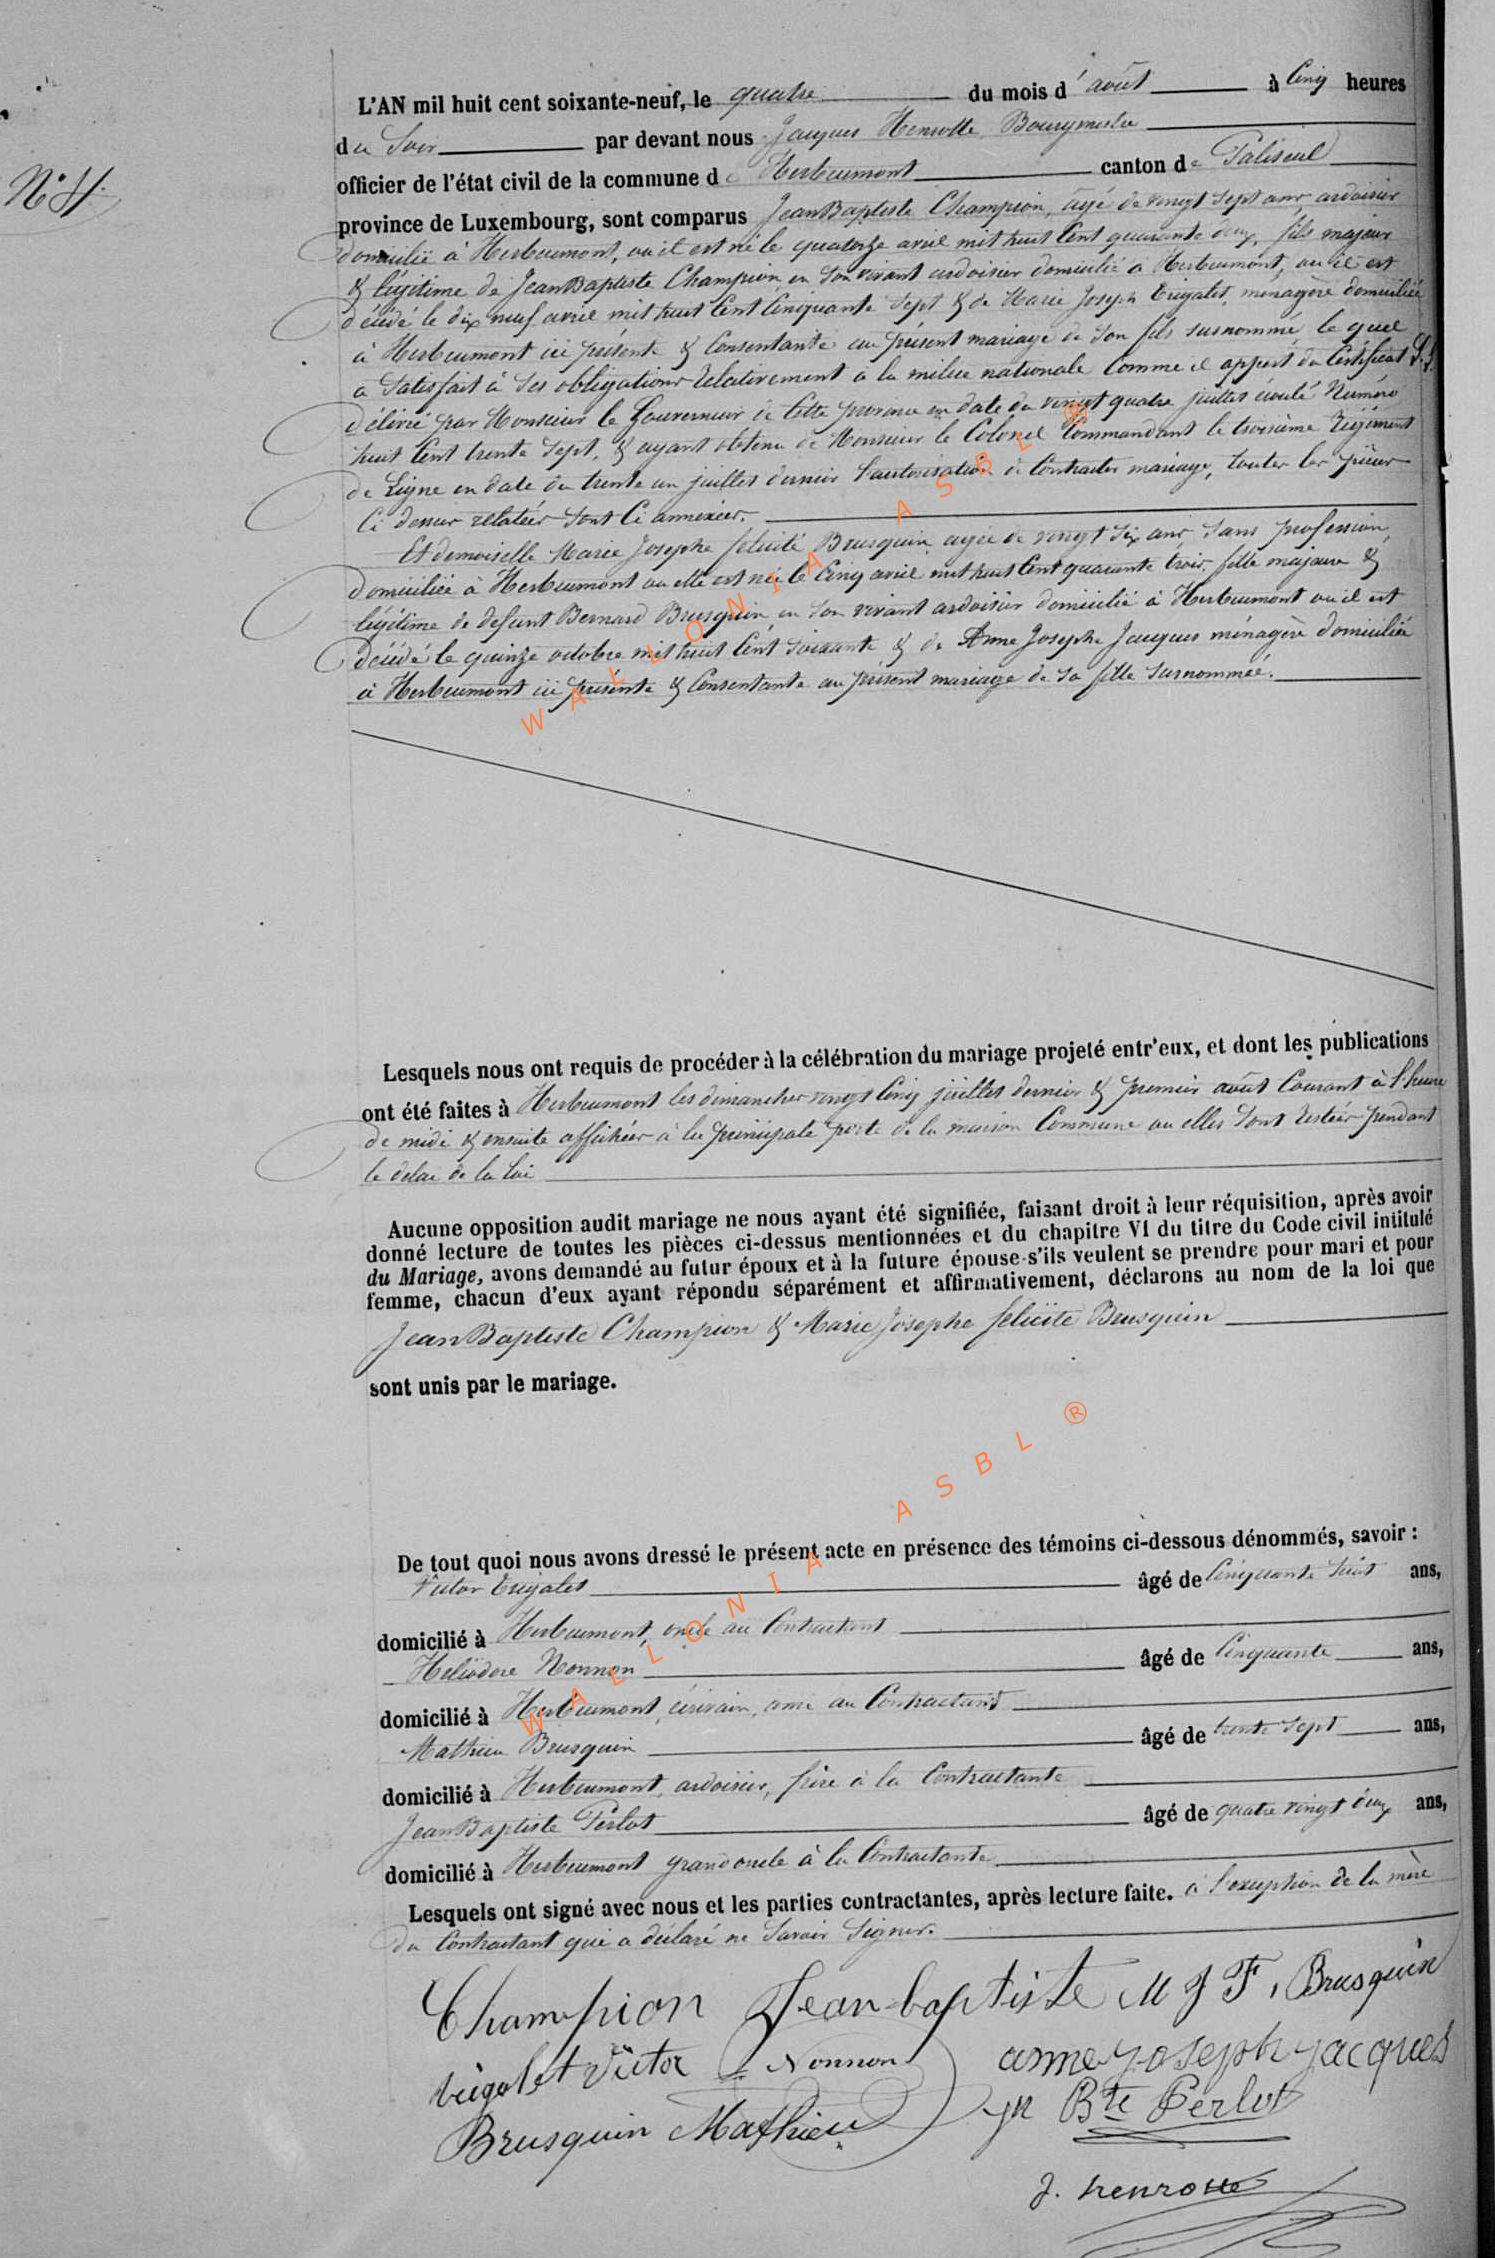 L'AN mil huit cent soixante-neuf, le quatre du mois d'août à Cinq heures
du Soir par devant nous Jacques Henrotte, Bourgmestre
officier de l'état civil de la commune de Herbeumont canton de Paliseul
N°
province de Luxembourg, sont comparus Jean Baptiste Champion, âgé de vingt sept ans, ardoisier
domicilié à Herbeumont, où il est né le quatorze avril mil huit Cent quarante deux, fils majeur
& légitime de Jean Baptiste Champion en son vivant ardoisier domicilié à Herbeumont, où il est
décédé le dix neuf avril mil huit Cent Cinquante Sept & de Marie Joseph Trigalet, ménagère domiciliée
à Herbeumont ici présente & Consentante au présent mariage de Son fils surnommé le quel
a Satisfait à Ses obligations relativement à la milice nationale Comme il appert du Certificat
délivré par Monsieur le Gouverneur de Cette province en date du vingt quatre juillet écoulé Numéro
huit Cent trente Sept, & ayant obtenu de Monsieur le Colonel Commandant le troisième Régiment
de Ligne en date du trente un juillet dernier l'autorisation de Contracter mariage, toutes les pièces
Ci dessus relatées Sont Ci annexées.
Et demoiselle Marie Josephe félicité Brusquin, agée de vingt Six ans Sans profession,
domiciliée à Herbeumont où elle est née le Cinq avril mil huit Cent quarante trois, fille majeure &
légitime de defunt Bernard Brusquin, en Son vivant ardoisier domicilié à Herbeumont où il est
décédé le quinze octobre mil huit Cent Soixante & de Anne Josephe Jacques ménagère domiciliée
à Herbeumont ici présente & Consentante au présent mariage de Sa fille Surnommée.
WALLONIA ASBL ®
Lesquels nous ont requis de procéder à la célébration du mariage projeté entr'eux, et dont les publications
ont été faites à Herbeumont les dimanches vingt Cinq juillet dernier & premier août Courant à l'heure
de midi & ensuite affichées à la principale porte de la maison Commune où elles Sont restées pendant
le delai de la Loi
Aucune opposition audit mariage ne nous ayant été signifiée, faisant droit à leur réquisition, après avoir
donné lecture de toutes les pièces ci-dessus mentionnées et du chapitre VI du titre du Code civil intitulé
du Mariage, avons demandé au futur époux et à la future épouse s'ils veulent se prendre pour mari et pour
femme, chacun d'eux ayant répondu séparément et affirmativement, déclarons au nom de la loi que
Jean Baptiste Champion & Marie Josephe félicité Brusquin
sont unis par le mariage.
WALLONIA ASBL ®
De tout quoi nous avons dressé le présent acte en présence des témoins ci-dessous dénommés, savoir :
Victor Trigalet âgé de Cinquante huit ans,
domicilié à Herbeumont, oncle au Contractant
Héliodore Nonnon âgé de Cinquante ans,
domicilié à Herbeumont, écrivain, ami au Contractant
Mathieu Brusquin âgé de trente Sept ans,
domicilié à Herbeumont, ardoisier, frère à la Contractante
Jean Baptiste Perlot âgé de quatre vingt deux ans,
domicilié à Herbeumont grand oncle à la Contractante
Lesquels ont signé avec nous et les parties contractantes, après lecture faite. à l'exception de la mère
du Contractant qui a déclaré ne Savoir Signer.
Champion Jean-baptiste M J F, Brusquin
trigalet Victor Nonnon anne joseph jacques
Brusquin Mathieu Jn Bte Perlot
J. henrotte